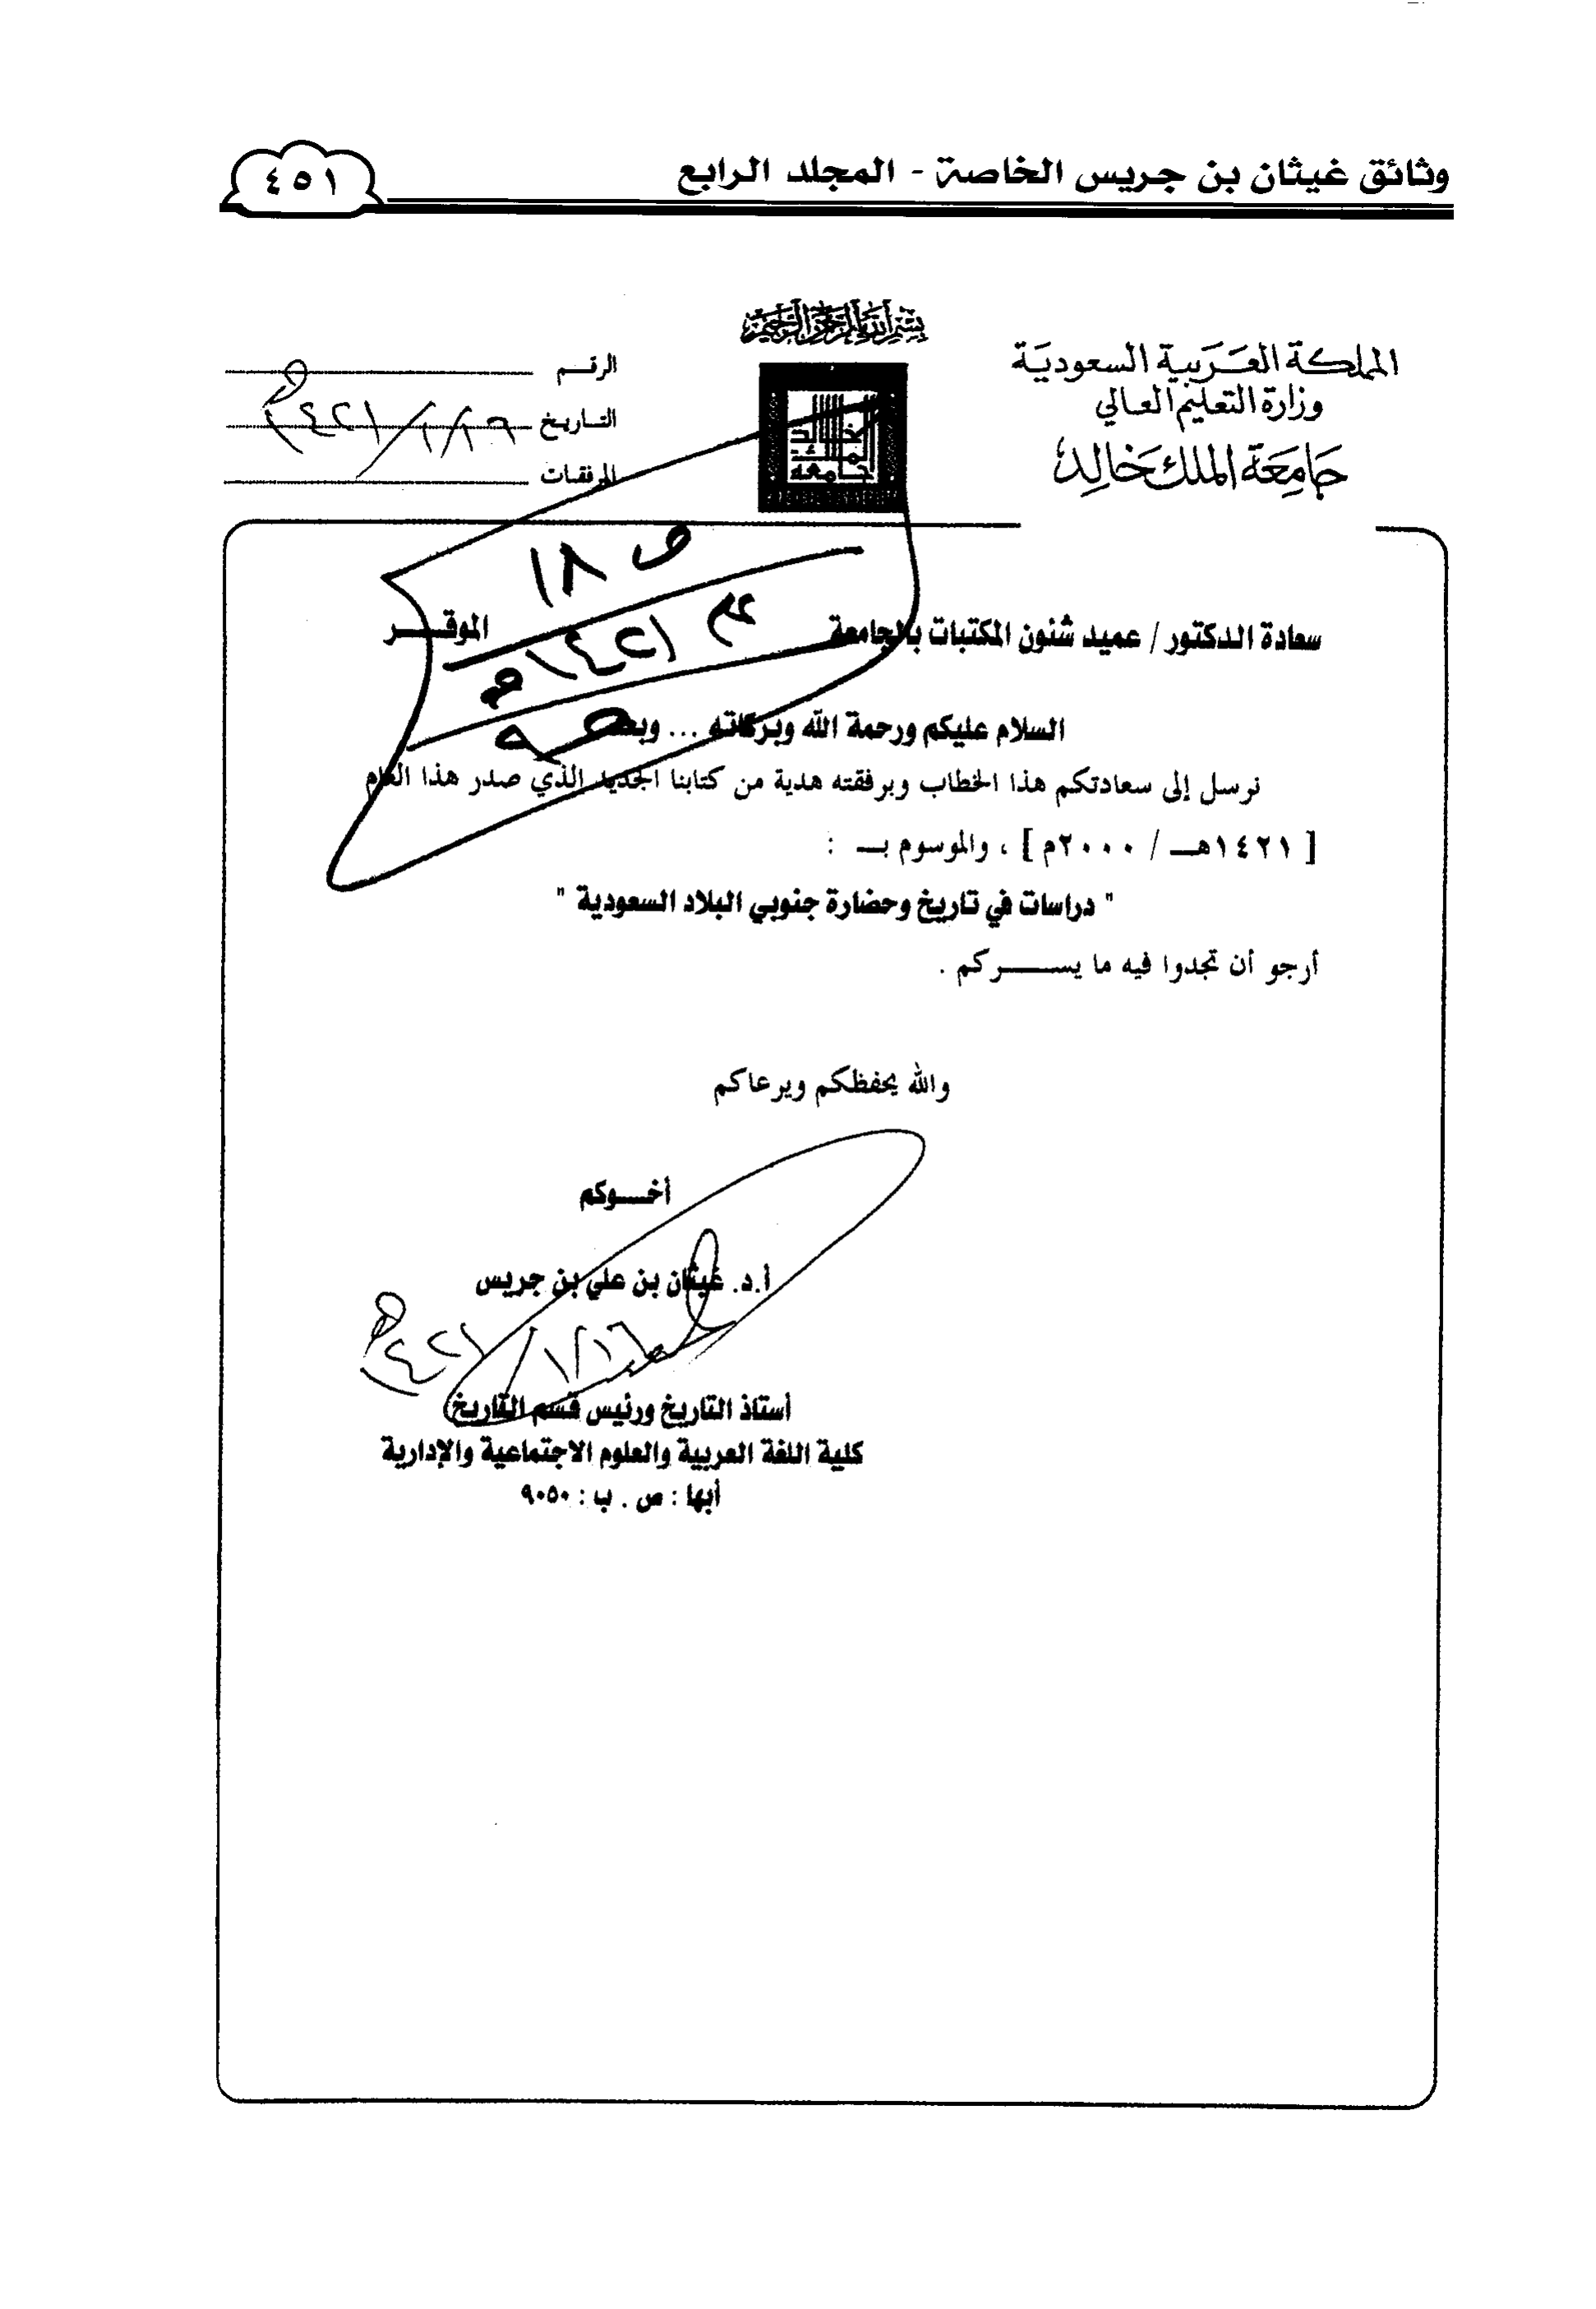 وثائق غيثان بن جريس الخاصة - المجلد الرابع
٤٥١
بسم الله الرحمن الرحيم
المملكة العربية السعودية
وزارة التعليم العالي
جامعة الملك خالد
جامعة الملك خالد
الرقم
التاريخ ١٤٢١/١/١٦هـ
المرفقات
ص ١٨
١٤٢١هـ
سعادة الدكتور / عميد شئون المكتبات بالجامعة الموقــر
السلام عليكم ورحمة الله وبركاته ... وبعد
نرسل إلى سعادتكم هذا الخطاب وبرفقته هدية من كتابنا الجديد الذي صدر هذا العام
[ ١٤٢١هــ / ٢٠٠٠م ] ، والموسوم بــ :
" دراسات في تاريخ وحضارة جنوبي البلاد السعودية "
أرجو أن تجدوا فيه ما يســـركم .
والله يحفظكم ويرعاكم
أخــوكم
أ.د. غيثان بن علي بن جريس
١٤٢١/١/١٦هـ
أستاذ التاريخ ورئيس قسم التاريخ
كلية اللغة العربية والعلوم الاجتماعية والإدارية
أبها : ص . ب : ٩٠٥٠